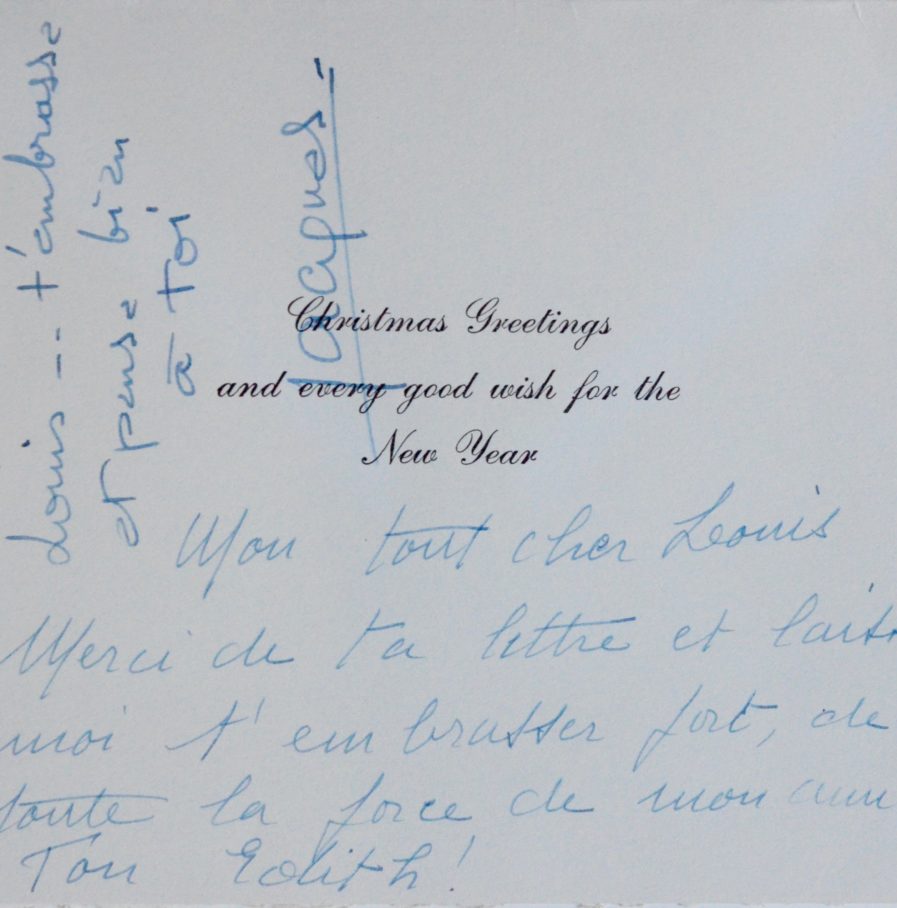 Christmas Greetings
and every good wish for the
New Year
Mon tout cher Louis
Merci de ta lettre et
moi t'embrasser fort, de
toute la force de mon
Ton Edith!
Louis -- t'embrasse
et pense bien
à toi
Jacques -